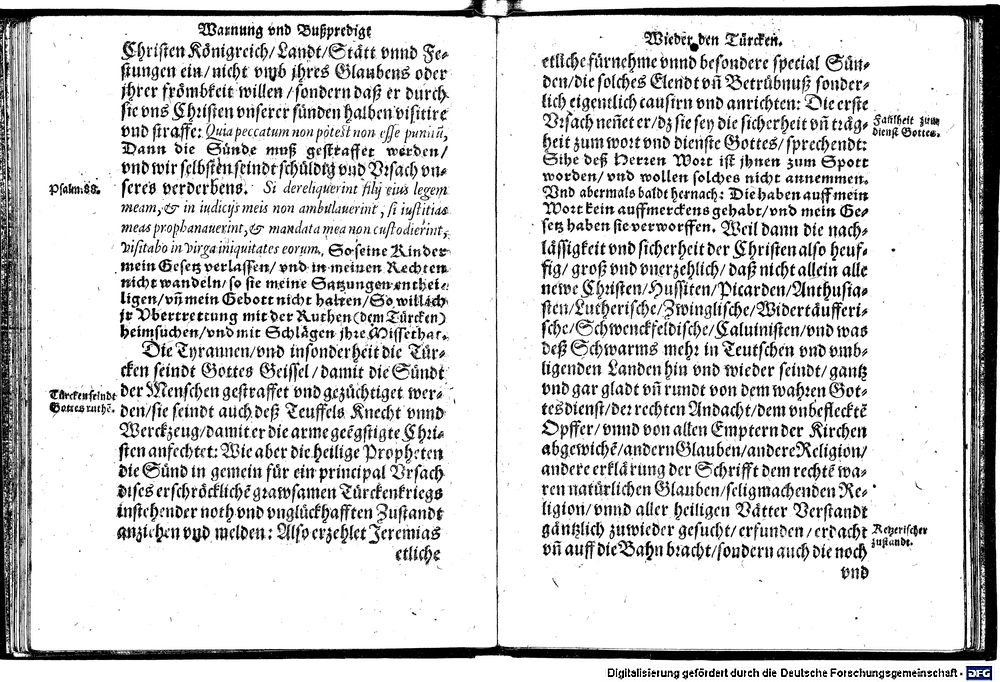 Warnung vnd Bußpredigt
Christen Königreich/Landt/Stätt vnnd Fe-
stungen ein/nicht vmb jhres Glaubens oder
jhrer frömbkeit willen/sondern daß er durch
sie vns Christen vnserer sünden halben visitire
vnd straffe: Quia peccatum non potest non esse punitū,
Dann die Sünde muß gestraffet werden/
vnd wir selbsten seindt schüldig vnd Vrsach vn-
seres verderbens. Si dereliquerint filij eius legem
meam, & in iudicijs meis non ambulauerint, si iustitias
meas prophanauerint, & mandata mea non custodierint,
visitabo in virga iniquitates eorum. So seine Kinder
mein Gesetz verlassen/vnd in meinen Rechten
nicht wandeln/so sie meine Satzungen enthei-
ligen/vñ mein Gebott nicht halten/So will ich
jr Vbertrettung mit der Ruthen (dem Türcken)
heimsuchen/vnd mit Schlägen jhre Missethat.
Psalm. 88.
Die Tyrannen/vnd insonderheit die Tür-
cken seindt Gottes Geissel/damit die Sündt
der Menschen gestraffet vnd gezüchtiget wer-
den/sie seindt auch deß Teuffels Knecht vnnd
Werckzeug/damit er die arme geẽgstigte Chri-
sten anfechtet: Wie aber die heilige Propheten
die Sünd in gemein für ein principal Vrsach
dises erschröcklichẽ grawsamen Türckenkriegs
instehender noth vnd vnglückhafften Zustandt
anziehen vnd melden: Also erzehlet Jeremias
Türcken seindt
Gottes ruthẽ.
etliche
Wieder den Türcken.
etliche fürnehme vnnd besondere special Sün-
den/die solches Elendt vñ Betrübnuß sonder-
lich eigentlich causirn vñ anrichten: Die erste
Vrsach neñet er/dz sie sey die sicherheit vñ träg-
heit zum wort vnd dienste Gottes/sprechendt:
Sihe deß Herren Wort ist jhnen zum Spott
worden/vnd wollen solches nicht annemmen.
Vnd abermals baldt hernach: Die haben auff mein
Wort kein auffmerckens gehabt/vnd mein Ge-
setz haben sie verworffen. Weil dann die nach-
lässigkeit vnd sicherheit der Christen also heuf-
fig/groß vnd vnerzehlich/daß nicht allein alle
newe Christen/Hussiten/Picarden/Anthusia-
sten/Lutherische/Zwinglische/Widertäufferi-
sche/Schwenckfeldische/Caluinisten/vnd was
deß Schwarms mehr in Teutschen vnd vmb-
ligenden Landen hin vnd wieder seindt/gantz
vnd gar gladt vñ rundt von dem wahren Got-
tesdienst/der rechten Andacht/dem vnbefleckte͂
Opffer/vnnd von allen Emptern der Kirchen
abgewichẽ/andern Glauben/andere Religion/
andere erklärung der Schrifft dem rechtẽ wa-
ren natürlichen Glauben/seligmachenden Re-
ligion/vnnd aller heiligen Vätter Verstandt
gäntzlich zuwieder gesucht/erfunden/erdacht
vñ auff die Bahn bracht/sondern auch die noch
Faulheit zum
dienst Gottes.
Ketzerischer
zustandt.
vnd
Digitalisierung gefördert durch die Deutsche Forschungsgemeinschaft - DFG